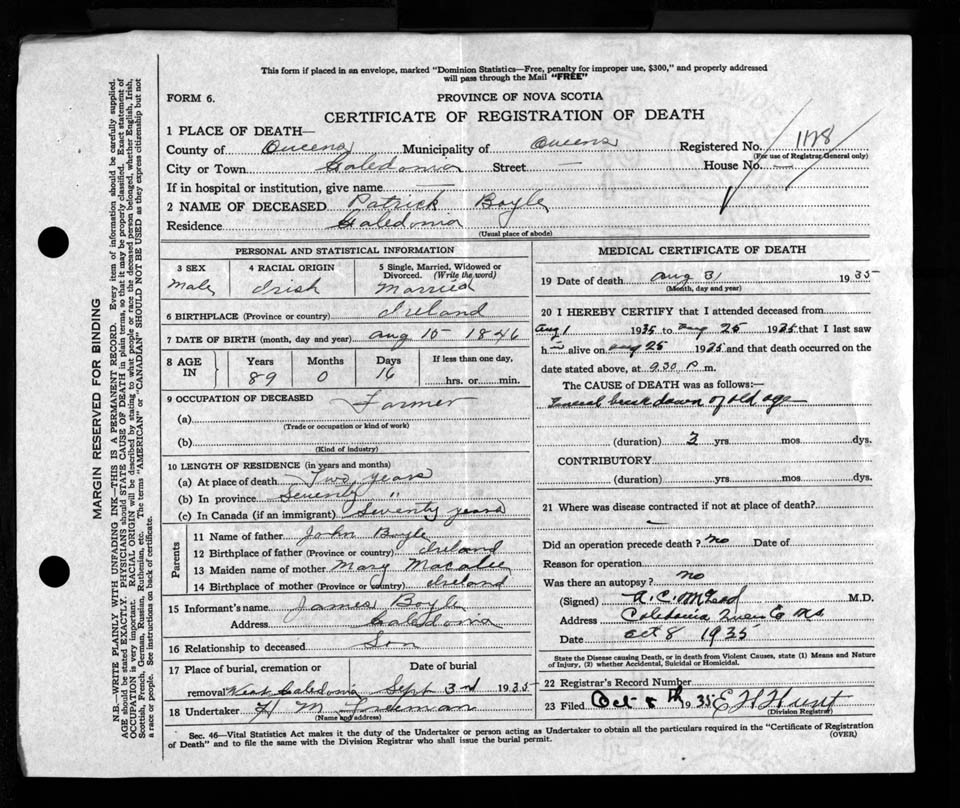 This form if placed in an envelope, marked "Dominion Statistics—Free, penalty for improper use, $300," and properly addressed
will pass through the Mail "FREE"
FORM 6.
PROVINCE OF NOVA SCOTIA
CERTIFICATE OF REGISTRATION OF DEATH
MARGIN RESERVED FOR BINDING
N.B.—WRITE PLAINLY WITH UNFADING INK—THIS IS A PERMANENT RECORD. Every item of information should be carefully supplied.
AGE should be stated EXACTLY. PHYSICIANS should STATE CAUSE OF DEATH in plain terms, so that it may be properly classified. Exact statement of
OCCUPATION is very important. RACIAL ORIGIN will be described by stating to what people or race the deceased person belonged, whether English, Irish,
Scottish, French, German, Russian, Ruthenian, etc. The terms "AMERICAN" or "CANADIAN" SHOULD NOT BE USED as they express citizenship but not
a race or people. See instructions on back of certificate.
1 PLACE OF DEATH—
County of Queens Municipality of Queens Registered No. 1178
(For use of Registrar General only)
City or Town Caledonia Street — House No. —
If in hospital or institution, give name —
2 NAME OF DECEASED Patrick Boyle
Residence Caledonia
(Usual place of abode)
PERSONAL AND STATISTICAL INFORMATION
3 SEX
Male
4 RACIAL ORIGIN
Irish
5 Single, Married, Widowed or
Divorced. (Write the word)
Married
6 BIRTHPLACE (Province or country) Ireland
7 DATE OF BIRTH (month, day and year) Aug 15 1846
8 AGE IN
Years 89
Months 0
Days 16
If less than one day,
hrs. or min.
9 OCCUPATION OF DECEASED Farmer
(a)
(Trade or occupation or kind of work)
(b)
(Kind of industry)
10 LENGTH OF RESIDENCE (in years and months)
(a) At place of death Two years
(b) In province Seventy "
(c) In Canada (if an immigrant) Seventy years
Parents
11 Name of father John Boyle
12 Birthplace of father (Province or country) Ireland
13 Maiden name of mother Mary
14 Birthplace of mother (Province or country) Ireland
15 Informant's name James Boyle
Address Caledonia
16 Relationship to deceased Son
17 Place of burial, cremation or
removal West Caledonia
Date of burial
Sept 3rd 1935
18 Undertaker H M Freeman
(Name and address)
MEDICAL CERTIFICATE OF DEATH
19 Date of death Aug 31 1935
(Month, day and year)
20 I HEREBY CERTIFY that I attended deceased from
Aug 1 1935 to Aug 25 1935 that I last saw
h im alive on Aug 25 1935 and that death occurred on the
date stated above, at 9.30 P m.
The CAUSE of DEATH was as follows:—
General breakdown of old age
(duration) 3 yrs mos dys.
CONTRIBUTORY
(duration) yrs mos dys.
21 Where was disease contracted if not at place of death?
—
Did an operation precede death? no Date of
Reason for operation
Was there an autopsy? no
(Signed) A. C. McLeod M.D.
Address Caledonia Queens Co NS
Date Oct 8 1935
State the Disease causing Death, or in death from Violent Causes, state (1) Means and Nature
of Injury, (2) whether Accidental, Suicidal or Homicidal.
22 Registrar's Record Number
23 Filed Oct 8th 1935 E H Hunt
(Division Registrar)
Sec. 46—Vital Statistics Act makes it the duty of the Undertaker or person acting as Undertaker to obtain all the particulars required in the "Certificate of Registration
of Death" and to file the same with the Division Registrar who shall issue the burial permit.
(OVER)